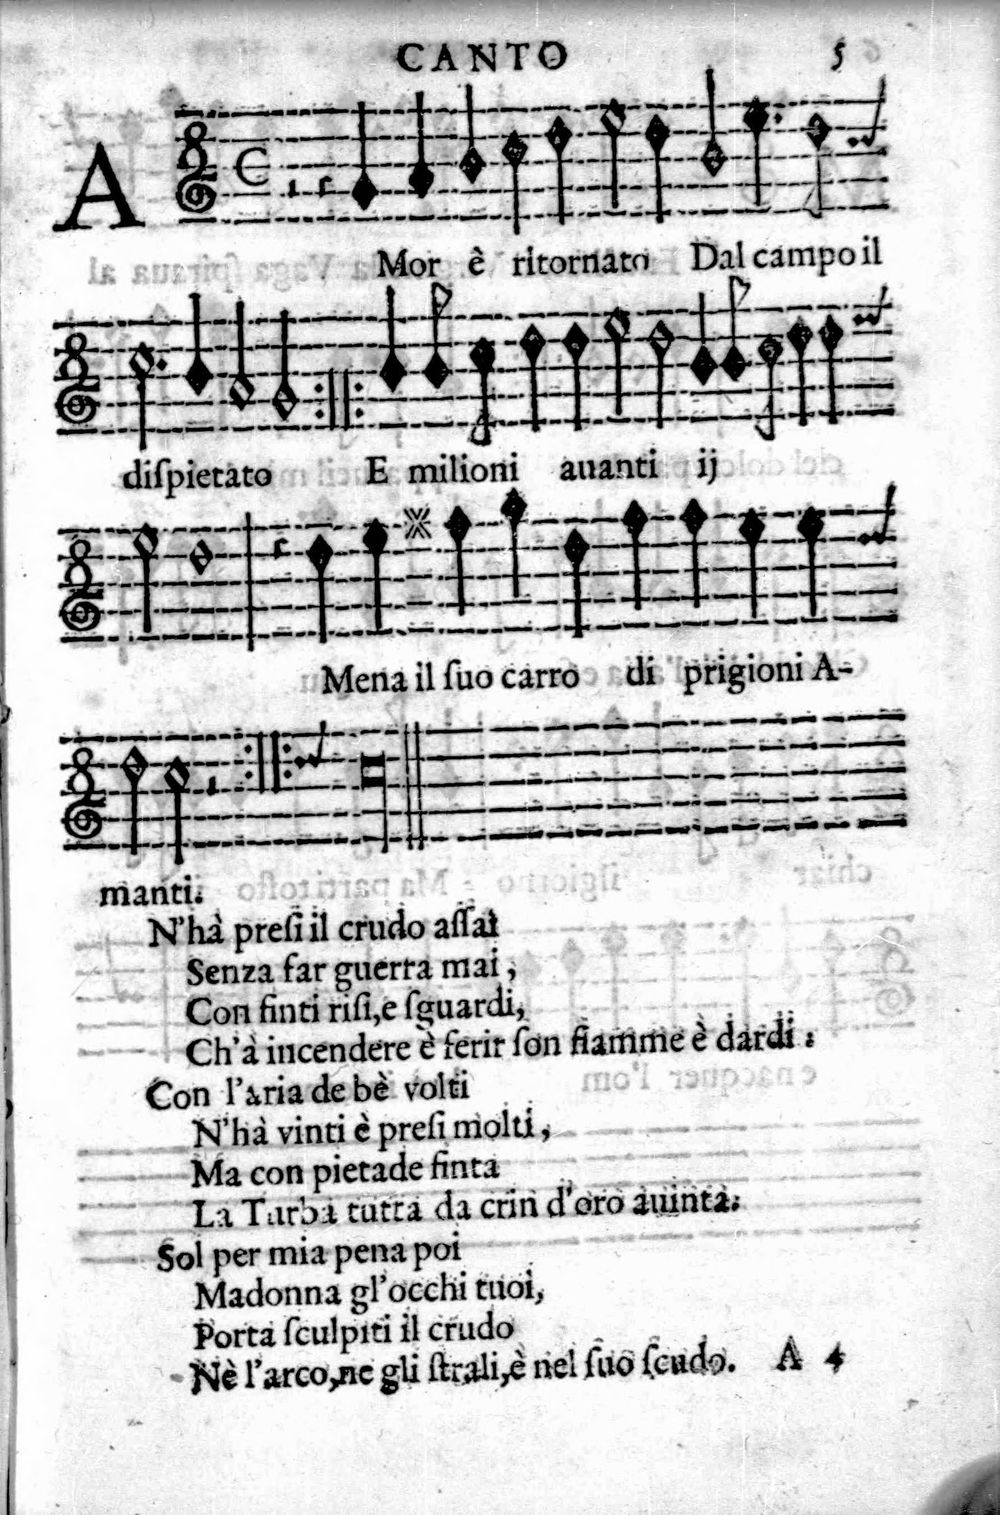 CANTO 5
A
Mor è ritornato Dal campo il
diſpietato E milioni auanti ij
Mena il ſuo carro di prigioni A-
manti.
N'hà preſi il crudo aſſai
Senza far guerra mai,
Con finti riſi, e ſguardi,
Ch'à incendere è ferir ſon fiamme è dardi.
Con l'aria de bè volti
N'hà vinti è preſi molti,
Ma con pietade finta
La Turba tutta da crin d'oro auinta.
Sol per mia pena poi
Madonna gl'occhi tuoi,
Porta ſculpiti il crudo
Nè l'arco, ne gli ſtrali, è nel ſuo ſcudo. A 4